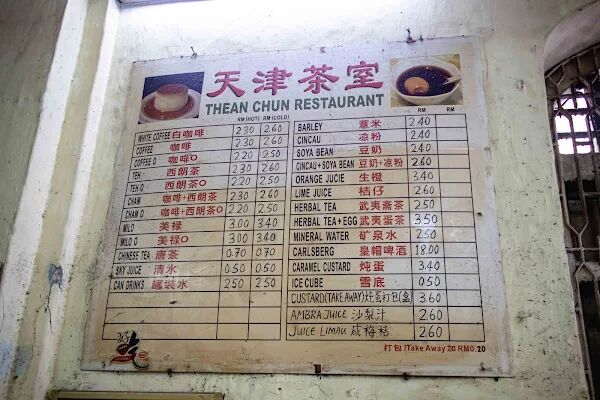 天津茶室
THEAN CHUN RESTAURANT
RM (HOT) RM (COLD)
WHITE COFFEE 白咖啡 2.30 2.60
COFFEE 咖啡 2.30 2.60
COFFEE O 咖啡O 2.20 2.50
TEH 西朗茶 2.30 2.60
TEH O 西朗茶O 2.20 2.50
CHAM 咖啡+西朗茶 2.30 2.60
CHAM O 咖啡+西朗茶O 2.20 2.50
MILO 美禄 3.00 3.40
MILO O 美禄O 3.00 3.40
CHINESE TEA 唐茶 0.70 0.70
SKY JUICE 清水 0.50 0.50
CAN DRINKS 罐装水 2.50 2.50
RM RM
BARLEY 薏米 2.40
CINCAU 凉粉 2.40
SOYA BEAN 豆奶 2.40
CINCAU + SOYA BEAN 豆奶+凉粉 2.60
ORANGE JUCIE 生橙 3.40
LIME JUICE 桔仔 2.60
HERBAL TEA 武夷斋茶 2.50
HERBAL TEA + EGG 武夷蛋茶 3.50
MINERAL WATER 矿泉水 2.50
CARLSBERG 皇帽啤酒 18.00
CARAMEL CUSTARD 炖蛋 3.40
ICE CUBE 雪底 0.50
CUSTARD (TAKE AWAY) 炖蛋打包(盒) 3.60
AMBRA JUICE 沙梨汁 2.60
JUICE LIMAU 咸梅桔 2.60
打包 /Take Away 加 RM0.20